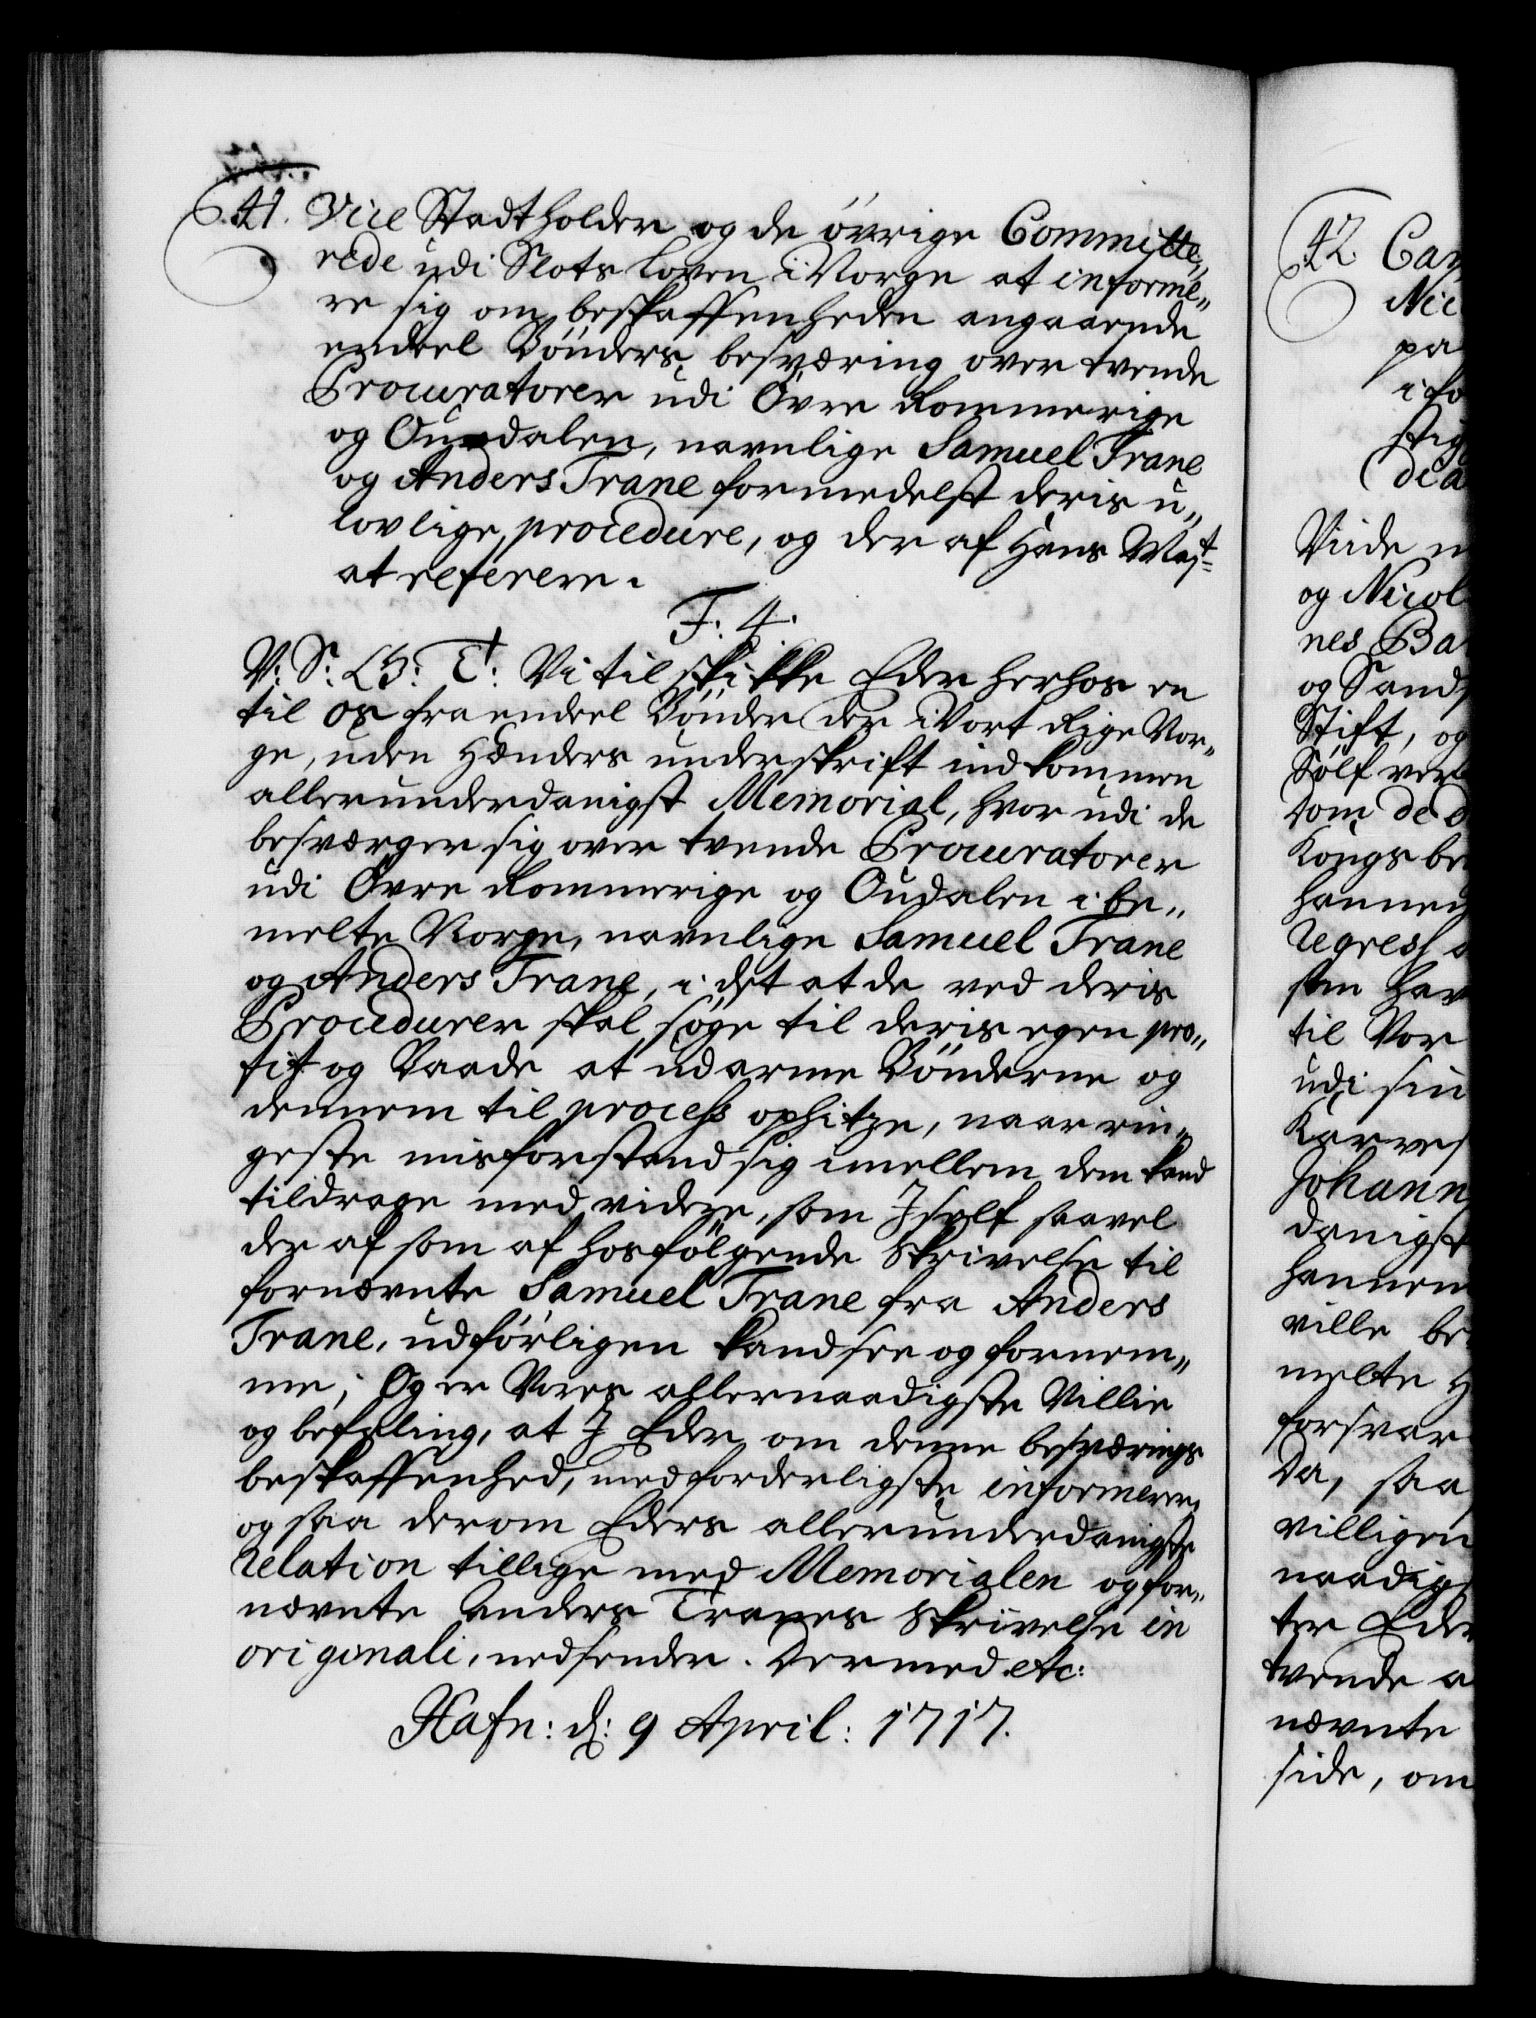 41. Vice Stadtholder og de övrige Committe„
rede udi Slots Loven i Norge at informe„
re sig om beskaffenheden angaaende
endeel Bönders besværing over tvende
Procuratorer udi Övre Rommerige
og Oudalen, navnlige Samuel Trane
og Anders Trane formedelst deris u„
lovlige procedure, og der af Hans May.t
at referere.
F: 4.
V: S: G: T: Vi tilskikke Eder herhos en
til os fra endeel Bönder der i Vort Rige Nor„
ge, uden Hænders underskrift indkommen
allerunderdanigst Memorial, hvor udi de
besværger sig over tvende Procuratorer
udi Övre Rommerige og Oudalen i be„
melte Norge, navnlige Samuel Trane
og Anders Trane, i det at de ved deris
Procedurer skal söge til deris egen pro„
fit og Baade at udarme Bönderne og
dennem til process ophitze, naar rin„
geste misforstand sig imellem dem kand
tildrage med videre, som I self saavel
der af som af hosfölgende Skrivelse til
fornævnte Samuel Trane fra Anders
Trane, udförligen kand see og fornem„
me; Og er Vores allernaadigste Villie
og befaling, at I Eder om denne besværings
beskaffenhed, med forderligste informerer,
og saa derom Eders allerunderdanigste
relation tillige med Memorialen og for„
nævnte Anders Tranes Skrivelse in
originali, nedsender. Dermed etc:
Hafn: d: 9 April: 1717.
42. Can
Nic
pa
i fo
stig
de a
Viide
og Nicol
nes Ba
og Sand
Stift, og
Sölfver
dom de
Kongsbe
hannem
regress
som har
til Vor
udi sin
Johann
danigst
hannem
ville be
melte H
forsvar
da, saa
villigen
naadigst
ter Eder
tvende a
nævnte
side, om